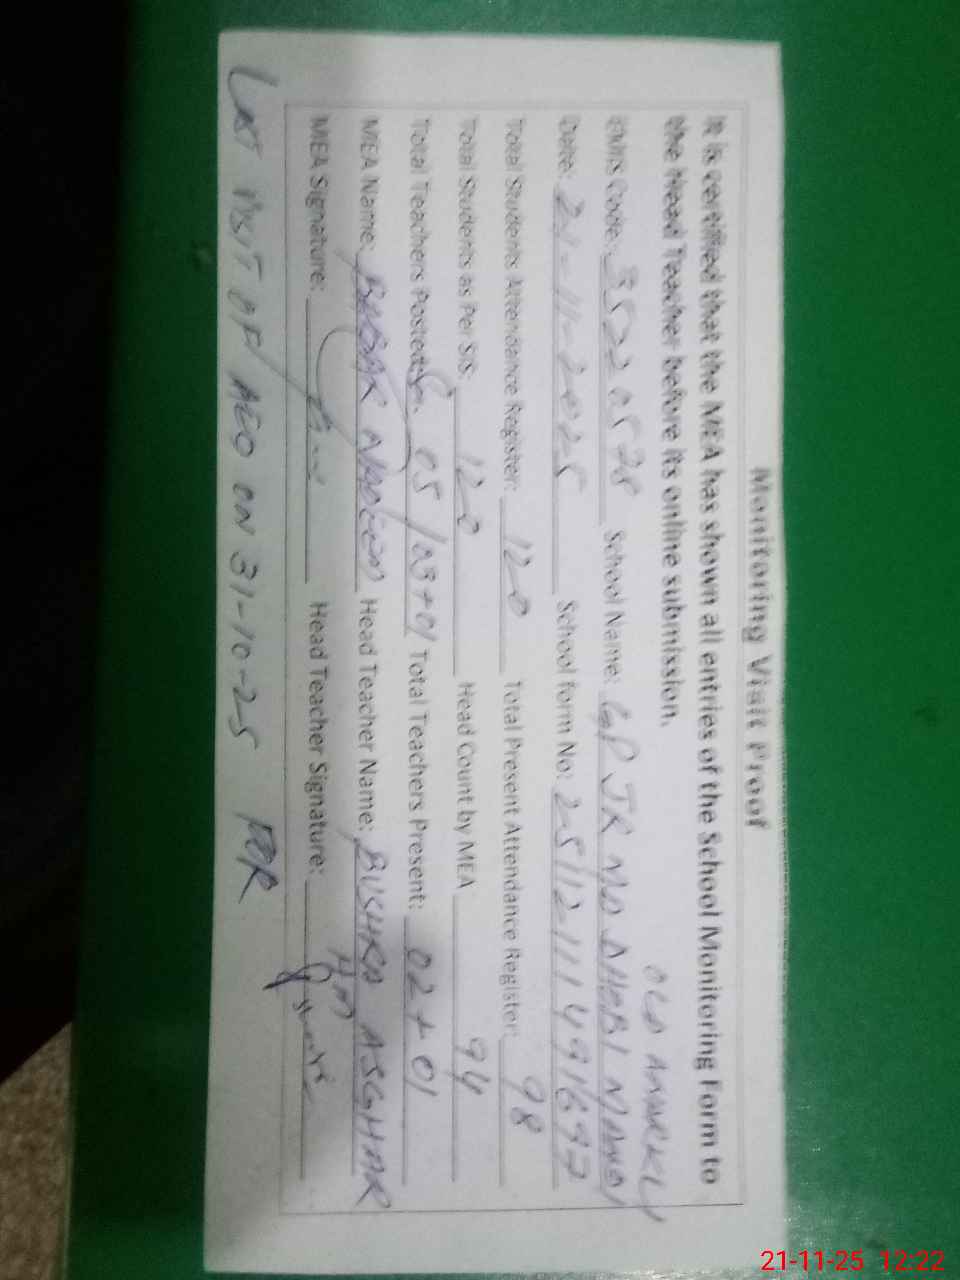 Monitoring Visit Proof
It is certified that the MEA has shown all entries of the School Monitoring Form to
the Head Teacher before its online submission.
OLD ANARKLY
Emis Code: 35220578 School Name: JR MO
Date: 21-11-2025 School Form No: 25112111491697
Total Students Attendance Register: 120 Total Present Attendance Register: 98
Total Students as Per SIS: 120 Head Count by MEA 94
Total Teachers Posted: 05/03+01 Total Teachers Present: 02+01
MEA Name: BABAR NADEEM Head Teacher Name: BUSHRA ASGHAR
HM
MEA Signature: Head Teacher Signature:
LAST VISIT OF AEO ON 31-10-25
21-11-25 12:22